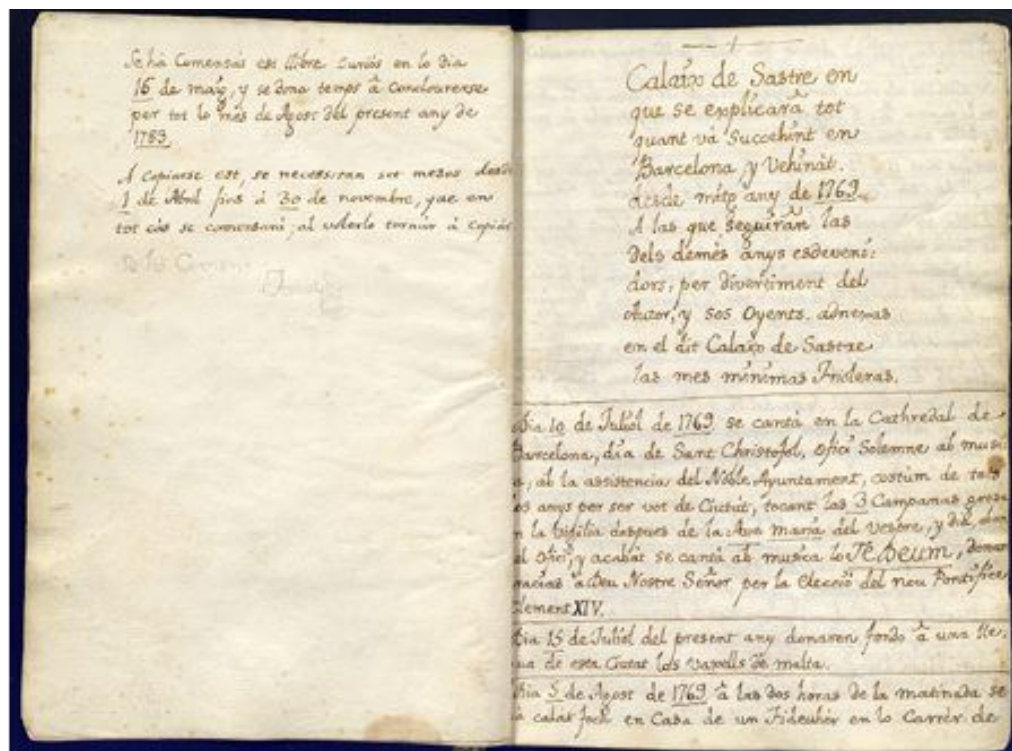 Se ha Comensás est llibre Lunàs en lo Dia
16 de maig, y se dona temps à Conclourense
per tot lo mes de Agost del present any de
1783.
A Copiarse est, se necessitan set mesos desde
1 de Abril fins à 30 de novembre, que en
tot cás se comensará, al volerlo tornar à Copiár
Calaixo de Sastre en
que se explicarà tot
quant và Succehint en
Barcelona y Vehinàt.
desde mitg any de 1769.
A las que seguiràn las
Dels demès anys esdeveni:
dors, per divertiment del
Autor, y Sos Oyents. adnexas
en el dit Calaixo de Sastre
las mes mínimas Frioleras.
Dia 10 de Juliòl de 1769. se cantà en la Cathredal de
Barcelona, dia de Sant Christofol, ofici Solemne ab musi:
ab la assistencia del Noble Ayuntament, costum de tots
os anys per ser vot de Ciutat, tocant las 3 Campanas grosa
n la Vigilia despues de la Ave maria del vespre, y dit, abans
el Ofici, y acabát se cantà ab musica lo Te Deum, donar
racias à Deu Nostre Señor per la Elecció del nou Pontifice
Clement XIV.
Dia 15 de Juliòl del present any donaren fondo à una lle:
ua de esta Ciutat los vaxells de malta.
Dia 5 de Agost de 1769. à las dos horas de la matinada se
calat foch en Casa de un Fideuhèr en lo Carrèr de